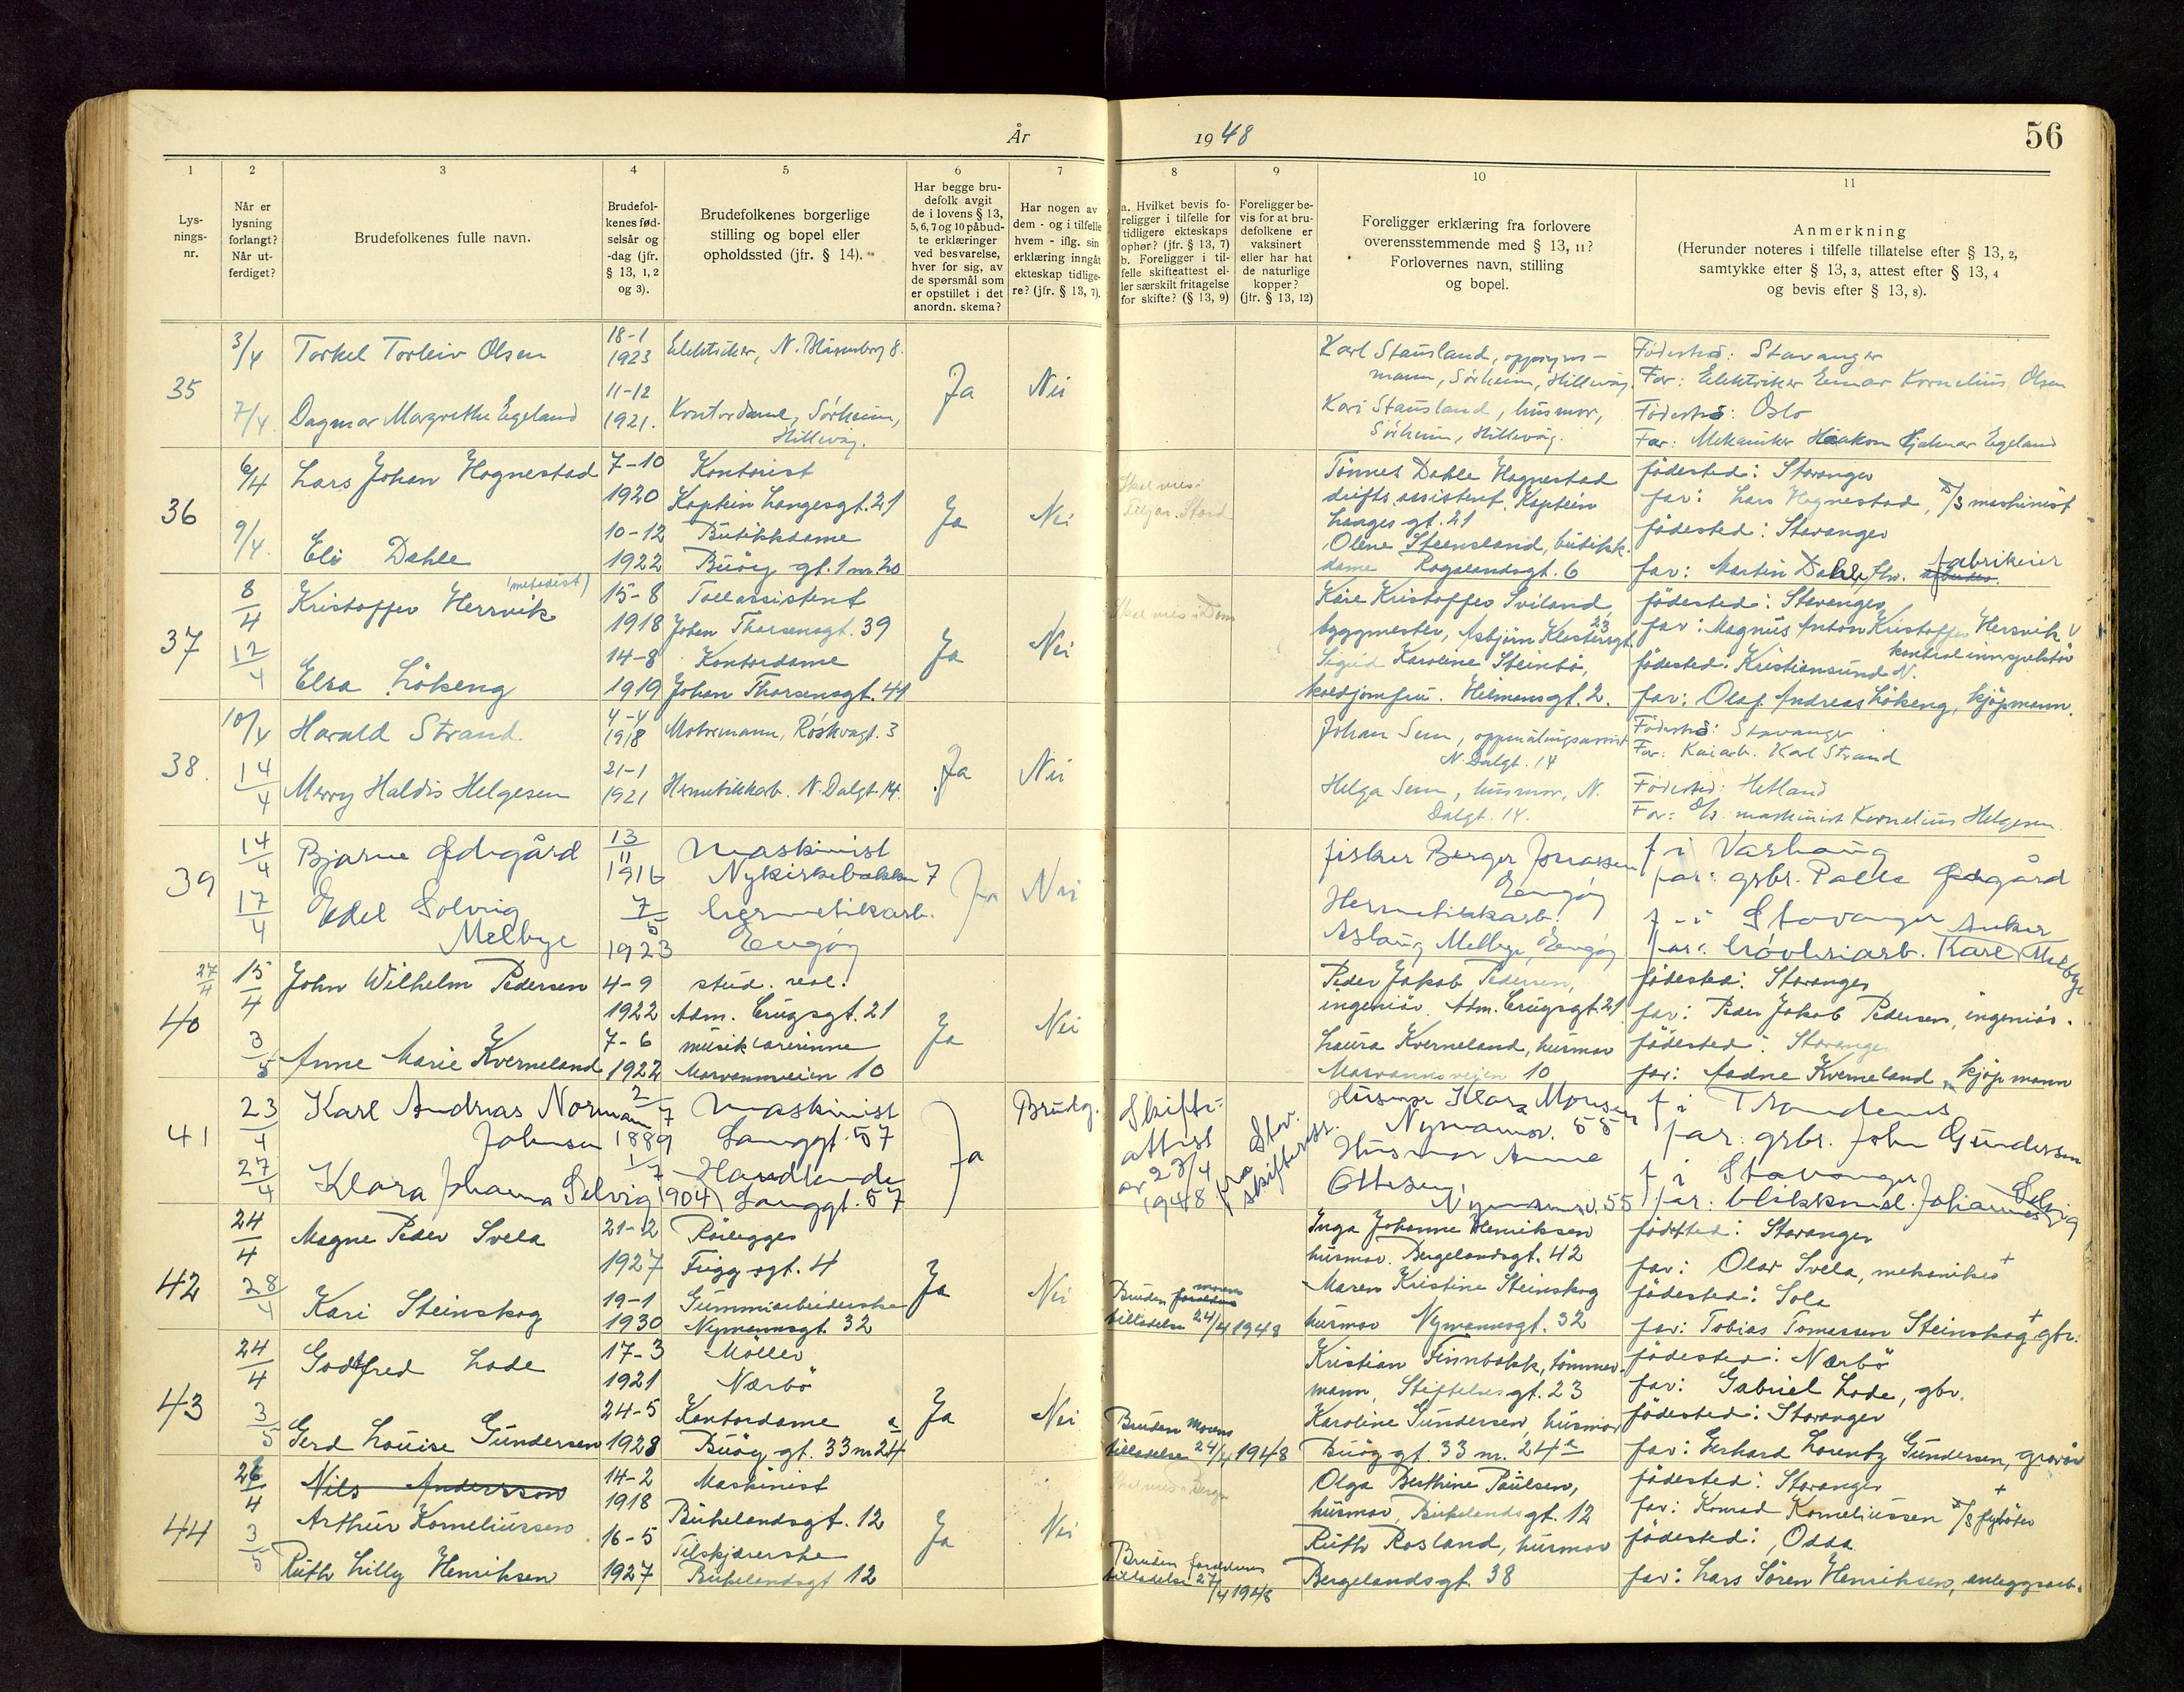 År 1948
56
1
2
3
4
5
6
7
8
9
10
11
Lys-
nings-
nr.
Når er
lysning
forlangt?
Når ut-
ferdiget?
Brudefolkenes fulle navn.
Brudefol-
kenes fød-
selsår og
-dag (jfr.
§ 13, 1, 2
og 3).
Brudefolkenes borgerlige
stilling og bopel eller
opholdssted (jfr. § 14).
Har begge bru-
defolk avgit
de i lovens § 13,
5, 6, 7 og 10 påbud-
te erklæringer
ved besvarelse,
hver for sig, av
de spørsmål som
er opstillet i det
anordn. skema?
Har nogen av
dem - og i tilfelle
hvem - iflg. sin
erklæring inngåt
ekteskap tidlige-
re? (jfr. § 13, 7).
a. Hvilket bevis fo-
religger i tilfelle for
tidligere ekteskaps
ophør? (jfr. § 13, 7)
b. Foreligger i til-
felle skifteattest el-
ler særskilt fritagelse
for skifte? (§ 13, 9)
Foreligger be-
vis for at bru-
defolkene er
vaksinert
eller har hat
de naturlige
kopper?
(jfr. § 13, 12)
Foreligger erklæring fra forlovere
overensstemmende med § 13, 11?
Forlovernes navn, stilling
og bopel.
Anmerkning
(Herunder noteres i tilfelle tillatelse efter § 13, 2,
samtykke efter § 13, 3, attest efter § 13, 4
og bevis efter § 13, 8).
35
3/4
7/4
Torkel Torleiv Olsen
Dagmar Margrethe Egeland
18-1
1923
11-12
1921.
Elektriker, N. Blåsenborg 8.
Kontordame, Sörheim,
Hillevåg.
Ja
Nei
Karl Stausland, oppsyns-
mann, Sörheim, Hillevåg.
Kari Stausland, husmor,
Sörheim, Hillevåg.
Födested: Stavanger
Far: Elektriker Einar Kornelius Olsen
Födested: Oslo
Far: Mekaniker Haakon Hjalmar Egeland
36
6/4
9/4.
Lars Johan Hognestad
Eli Dahle
7-10
1920
10-12
1922
Kontorist
Kaptein Langesgt. 21
Butikkdame
Buöy gt. 1 nr. 20
Ja
Nei
Skal vies i
Tönnes Dahle Hognestad
driftsassistent, Kaptein
Langes gt. 21
Olene Steensland, butikk-
dame Rogalandsgt. 6
födested: Stavanger
far: Lars Hognestad, D/S maskinist
födested: Stavanger
far: Martin Dahle, fabrikeier
37
8/4
12/4
Kristoffer Hersvik (metodist)
Elsa Lökeng
15-8
1918
14-8
1919
Tollassistent
Johan Thorsensgt. 39
Kontordame
Johan Thorsensgt. 41
Ja
Nei
Skal vies i Dom
Kåre Kristoffer Sviland
byggmester, Asbjörn Klostersgt. 23
Sigrid Karoline Steinbö,
koldjomfru. Hilmansgt. 2.
födested: Stavanger
far: Magnus Anton Kristoffer Hersvik
kontrolinnspektör
födested: Kristiansund N.
far: Olaf Andreas Lökeng, kjöpmann.
38.
10/4
14/4
Harald Strand
Merry Haldis Helgesen
4-4
1918
21-1
1921
Motormann, Röskvagt. 3
Hermetikkarb. N. Dalgt. 14.
Ja
Nei
Johan Sem, oppmålingsassist
N. Dalgt. 14
Helga Sem, husmor, N.
Dalgt. 14.
Födested: Stavanger
Far: Kaiarb. Karl Strand
Födested: Hetland
Far: D/s. maskinist Kornelius Helgesen.
39
14/4
17/4
Bjarne Ødegård
Edel Solveig
Melbye
13/11
1916
7/5
1923
Maskinist
Nykirkebakken 7
hermetikkarb.
Engöy
Ja
Nei
fisker Berger Jonassen
Engöy
Hermetikkarb.
Aslaug Melbye, Engöy
f i Varhaug
far: grbr. Palle Ødegård
f. i Stavanger
far: Anker Karl Melbye
40
27/4
15/4
3/5
John Wilhelm Pedersen
Anne Marie Kverneland
4-9
1922
7-6
1922
stud. real.
Adm. Crugsgt. 21
musiklærerinne
Mosvannsveien 10
Ja
Nei
Peder Jakob Pedersen,
ingeniör. Adm. Crugsgt. 21
Laura Kverneland, husmor
Mosvannsveien 10
födested: Stavanger
far: Peder Jakob Pedersen, ingeniör.
födested: Stavanger
far: Aadne Kverneland, kjöpmann
41
23/4
27/4
Karl Andreas Norman
Johnsen
Klara Johanna Selvig
2/7
1889
1/7
1904
Maskinist
Langgt. 57
Handlende
Langgt. 57
Ja
Brudg.
Skifte-
attest
av 23/4
1948
fra Stv.
skifterett.
Husmor Klara Monsen
Nymannsv. 55
Husmor Anne
Ottesen
Nymannsv. 55
f i Trondenes
far: grbr. John Gundersen
f i Stavanger
far: blikksmed. Johannes Selvig
42
24/4
28/4
Magne Peder Svela
Kari Steinskog
21-2
1927
19-1
1930
Rörlegger
Friggsgt. 4
Gummiarbeiderske
Nymannsgt. 32
Ja
Nei
Bruden foreldres morens
tilladelse 24/4 1948
Inga Johanne Henriksen
husmor. Bergelandsgt. 42
Maren Kristine Steinskog
husmor Nymannsgt. 32
födested: Stavanger
far: Olav Svela, mekaniker +
födested: Sola
far: Tobias Tomassen Steinskog + gbr.
43
24/4
3/5
Godtfred Lode
Gerd Louise Gundersen
17-3
1921
24-5
1928
Möller
Nærbö
Kontordame
Buöy gt. 33 nr 24 a
Ja
Nei
Bruden morens
tilladelse 24/4 1948
Kristian Finnbakk, tömmer-
mann, Stiftelsesgt. 23
Karoline Gundersen, husmor
Buöy gt. 33 nr. 24 a
födested: Nærbö
far: Gabriel Lode, gbr.
födested: Stavanger
far: Gerhard Lorentz Gundersen, gravör
44
26/4
3/5
Nils Andersson
Arthur Korneliussen
Ruth Lilly Henriksen
14-2
1918
16-5
1927
Maskinist
Birkelandsgt. 12
Tilskjærerske
Birkelandsgt 12
Ja
Nei
Bruden foreldres
tilladelse 27/4 1948
Olga Berthine Paulsen,
husmor, Birkelandsgt. 12
Ruth Rosland, husmor
Bergelandsgt. 38
födested: Stavanger
far: Konrad Korneliussen + D/S fyrböter
födested: Odda
far: Lars Sören Henriksen, anleggsarb.